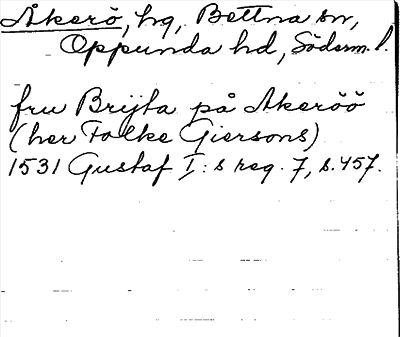 Åkerö, hg, Bettna sn,
Oppunda hd, Söderm. l.
fru Brijta på Akeröö
(her Falke Giersons)
1531 Gustaf I:s reg. 7, s. 457.